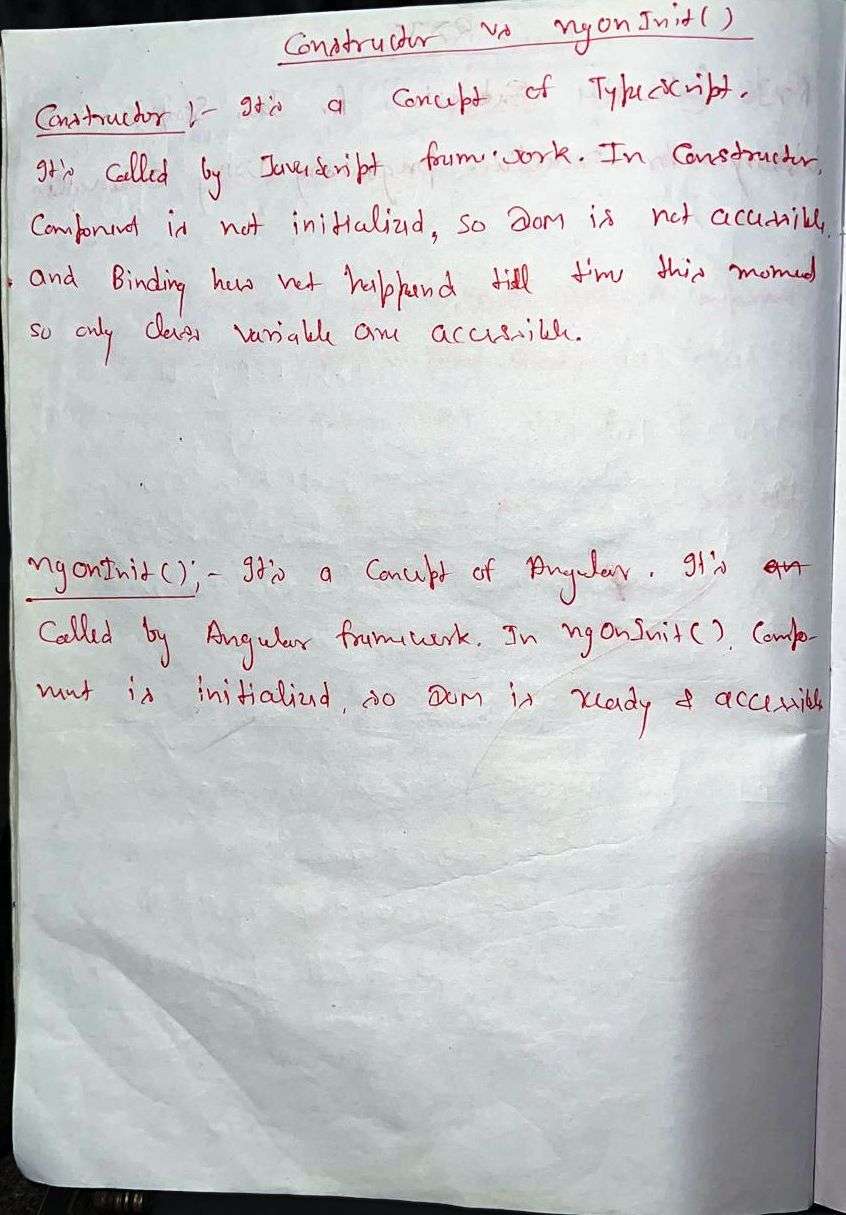 Constructor vs ngonInit()
Constructor :- It's a Concept of Typescript.
It's Called by JavaScript framework. In Constructor,
Component is not initialized, so Dom is not accessible,
and Binding has not happend till time this moment
so only class variable are accessible.
ngonInit():- It's a Concept of Angular. It's an
Called by Angular framework. In ngOnInit(), Compo-
nent is initialized, so Dom is ready & accessible